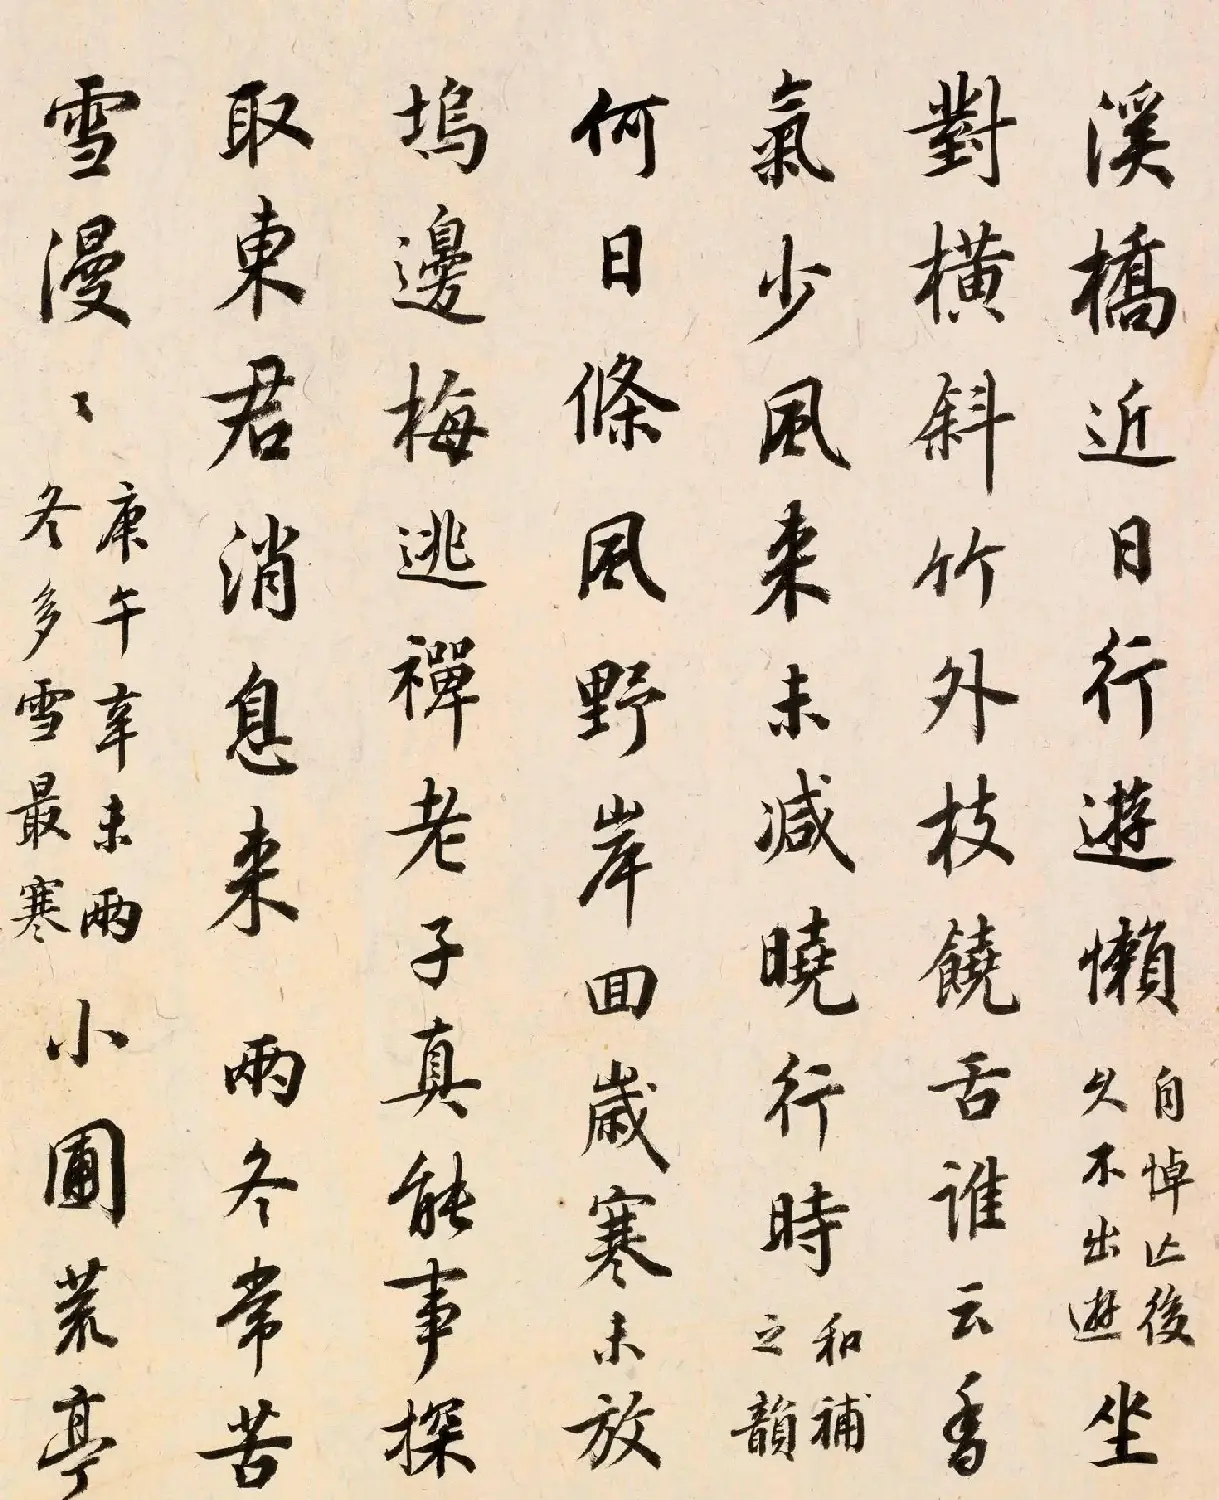 溪橋近日行遊懶
自悼亾後
久不出遊
坐
對橫斜竹外枝饒舌誰云香
氣少風来未減曉行時
和補
之韻
何日條風野岸回歲寒未放
塢邊梅逃禪老子真能事探
取東君消息来 兩冬常苦
雪漫〻
庚午辛未兩
冬多雪最寒
小圃荒亭